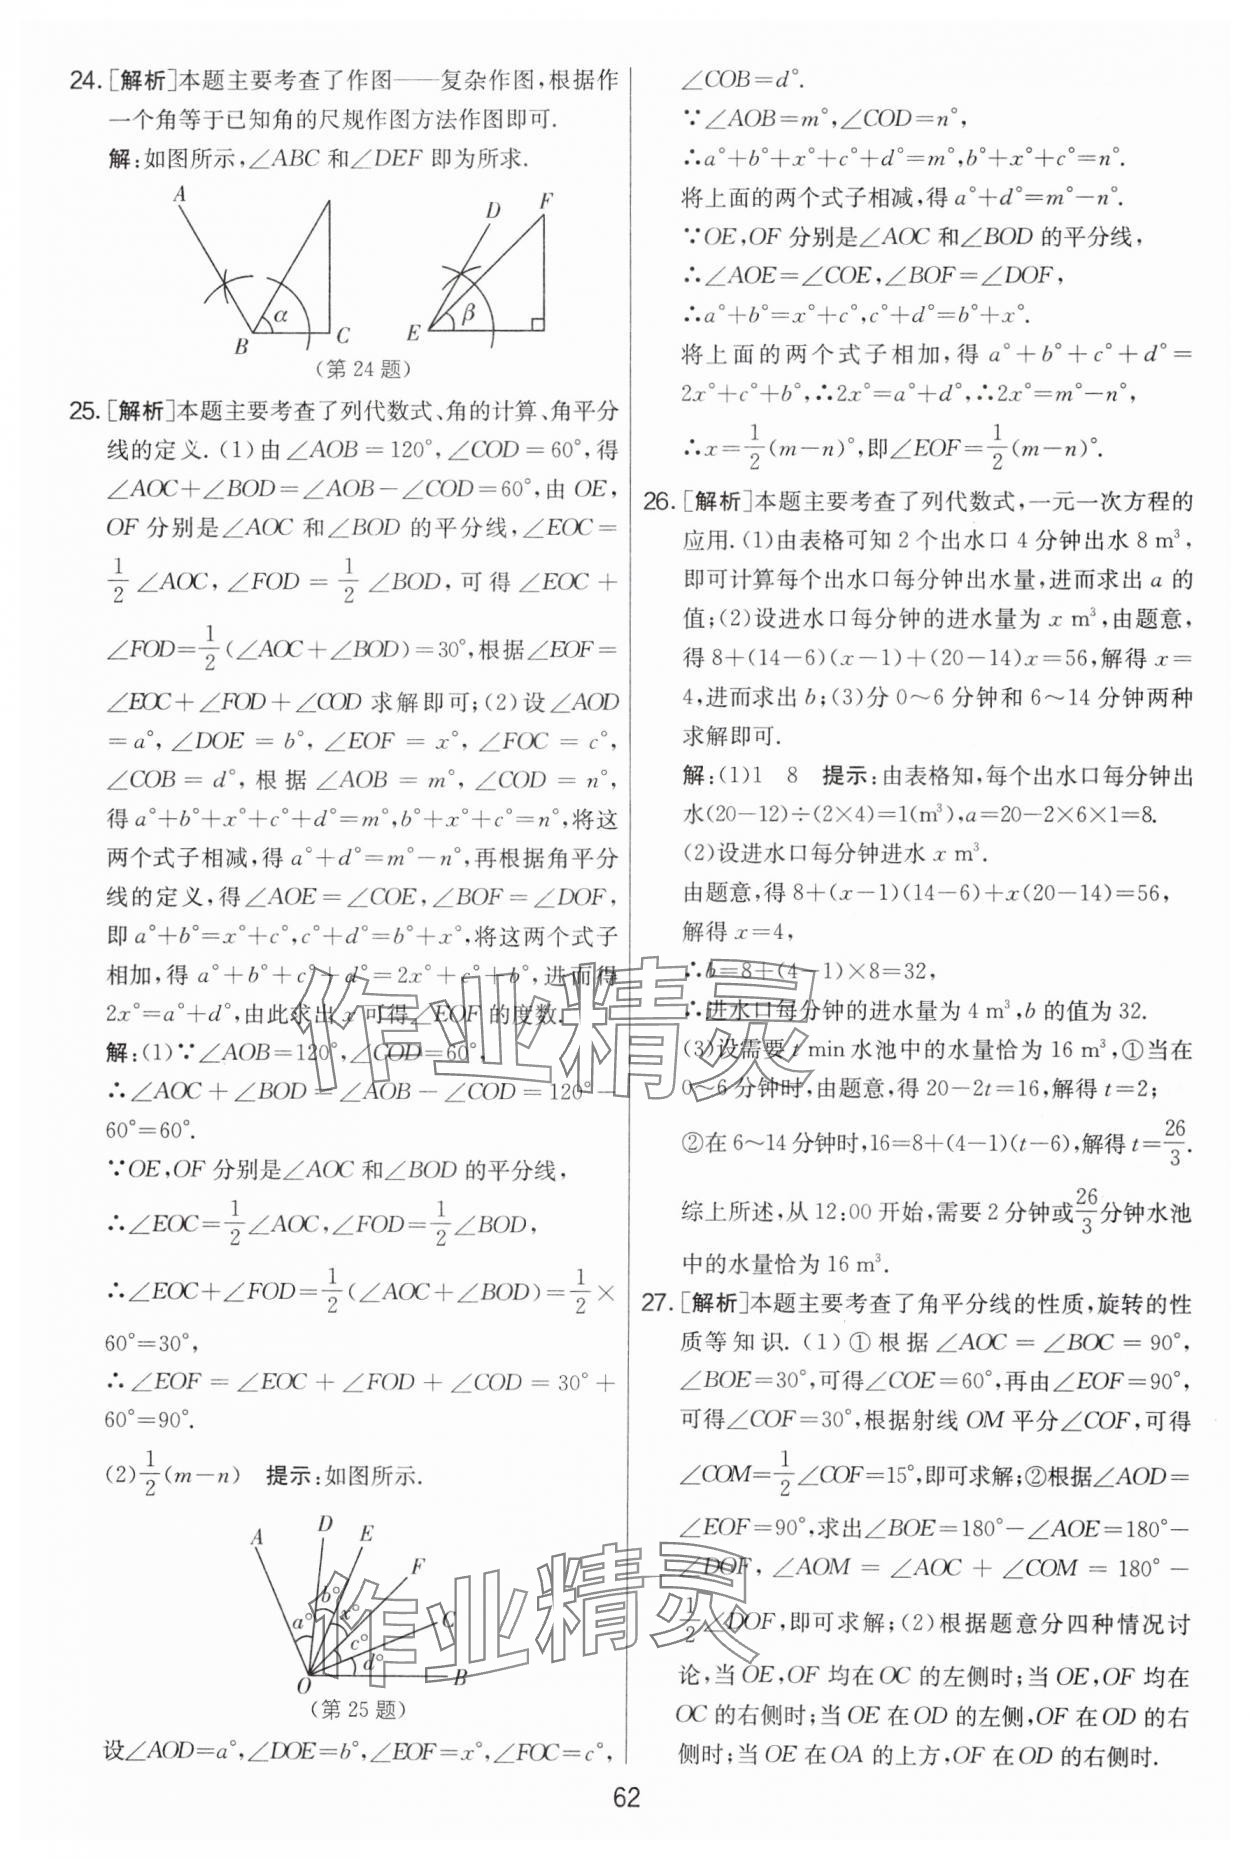 24. [解析]本题主要考查了作图——复杂作图,根据作
一个角等于已知角的尺规作图方法作图即可.
解:如图所示,∠ABC 和∠DEF 即为所求.
A
α
B
C
D
F
β
E
(第 24 题)
25. [解析]本题主要考查了列代数式、角的计算、角平分
线的定义. (1)由∠AOB=120°,∠COD=60°,得
∠AOC+∠BOD=∠AOB-∠COD=60°,由 OE,
OF 分别是∠AOC 和∠BOD 的平分线,∠EOC=
1/2∠AOC,∠FOD=1/2∠BOD,可得∠EOC+
∠FOD=1/2(∠AOC+∠BOD)=30°,根据∠EOF=
∠EOC+∠FOD+∠COD 求解即可;(2)设∠AOD
=a°,∠DOE=b°,∠EOF=x°,∠FOC=c°,
∠COB=d°,根据∠AOB=m°,∠COD=n°,
得 a°+b°+x°+c°+d°=m°,b°+x°+c°=n°,将这
两个式子相减,得 a°+d°=m°-n°,再根据角平分
线的定义,得∠AOE=∠COE,∠BOF=∠DOF,
即 a°+b°=x°+c°,c°+d°=b°+x°,将这两个式子
相加,得 a°+b°+c°+d°=2x°+c°+b°,进而得
2x°=a°+d°,由此求出 x 可得∠EOF 的度数.
解:(1)∵∠AOB=120°,∠COD=60°,
∴∠AOC+∠BOD=∠AOB-∠COD=120°-
60°=60°.
∵OE,OF 分别是∠AOC 和∠BOD 的平分线,
∴∠EOC=1/2∠AOC,∠FOD=1/2∠BOD,
∴∠EOC+∠FOD=1/2(∠AOC+∠BOD)=1/2×
60°=30°,
∴∠EOF=∠EOC+∠FOD+∠COD=30°+
60°=90°.
(2)1/2(m-n) 提示:如图所示.
A
D
E
F
C
B
O
a°
b°
x°
c°
d°
(第 25 题)
设∠AOD=a°,∠DOE=b°,∠EOF=x°,∠FOC=c°,
∠COB=d°.
∵∠AOB=m°,∠COD=n°,
∴a°+b°+x°+c°+d°=m°,b°+x°+c°=n°.
将上面的两个式子相减,得 a°+d°=m°-n°.
∵OE,OF 分别是∠AOC 和∠BOD 的平分线,
∴∠AOE=∠COE,∠BOF=∠DOF,
∴a°+b°=x°+c°,c°+d°=b°+x°.
将上面的两个式子相加,得 a°+b°+c°+d°=
2x°+c°+b°,∴2x°=a°+d°,∴2x°=m°-n°,
∴x=1/2(m-n)°,即∠EOF=1/2(m-n)°.
26. [解析]本题主要考查了列代数式,一元一次方程的
应用. (1)由表格可知 2 个出水口 4 分钟出水 8 m³,
即可计算每个出水口每分钟出水量,进而求出 a 的
值;(2)设进水口每分钟的进水量为 x m³,由题意,
得 8+(14-6)(x-1)+(20-14)x=56,解得 x=
4,进而求出 b;(3)分 0~6 分钟和 6~14 分钟两种
求解即可.
解:(1)1 8 提示:由表格知,每个出水口每分钟出
水(20-12)÷(2×4)=1(m³),a=20-2×6×1=8.
(2)设进水口每分钟进水 x m³.
由题意,得 8+(x-1)(14-6)+x(20-14)=56,
解得 x=4,
∴b=8+(4-1)×8=32,
∴进水口每分钟的进水量为 4 m³,b 的值为 32.
(3)设需要 t min 水池中的水量恰为 16 m³,①当在
0~6 分钟时,由题意,得 20-2t=16,解得 t=2;
②在 6~14 分钟时,16=8+(4-1)(t-6),解得 t=26/3.
综上所述,从 12:00 开始,需要 2 分钟或26/3分钟水池
中的水量恰为 16 m³.
27. [解析]本题主要考查了角平分线的性质,旋转的性
质等知识. (1)①根据∠AOC=∠BOC=90°,
∠BOE=30°,可得∠COE=60°,再由∠EOF=90°,
可得∠COF=30°,根据射线 OM 平分∠COF,可得
∠COM=1/2∠COF=15°,即可求解;②根据∠AOD=
∠EOF=90°,求出∠BOE=180°-∠AOE=180°-
∠DOF,∠AOM=∠AOC+∠COM=180°-
1/2∠DOF,即可求解;(2)根据题意分四种情况讨
论,当 OE,OF 均在 OC 的左侧时;当 OE,OF 均在
OC 的右侧时;当 OE 在 OD 的左侧,OF 在 OD 的右
侧时;当 OE 在 OA 的上方,OF 在 OD 的右侧时.
62
作业精灵
作业精灵